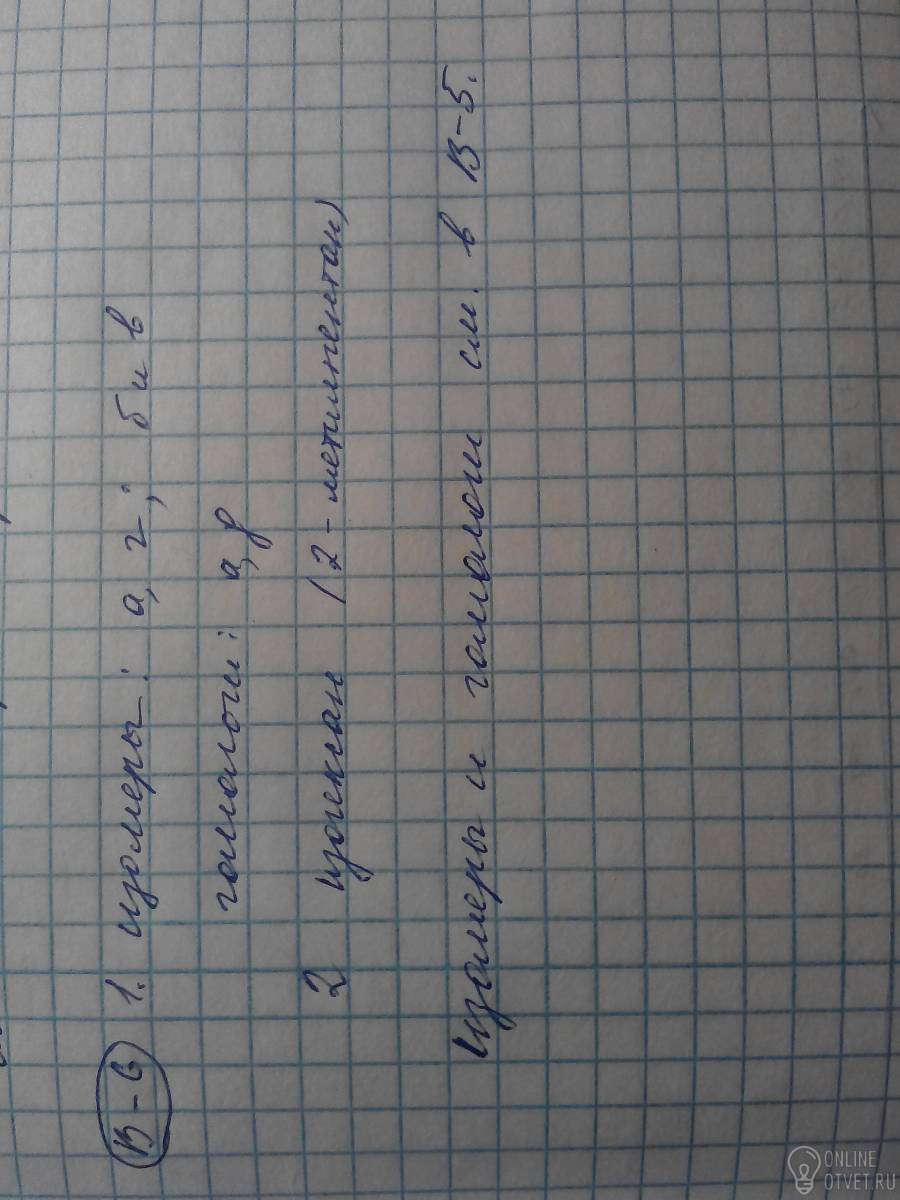 В-6 1. изомеры: а, г; б и в
гомологи: а, д
2 изогексан (2-метилпентан)
Изомеры и гомологи см. в В-5.
ONLINE
OTVET.RU